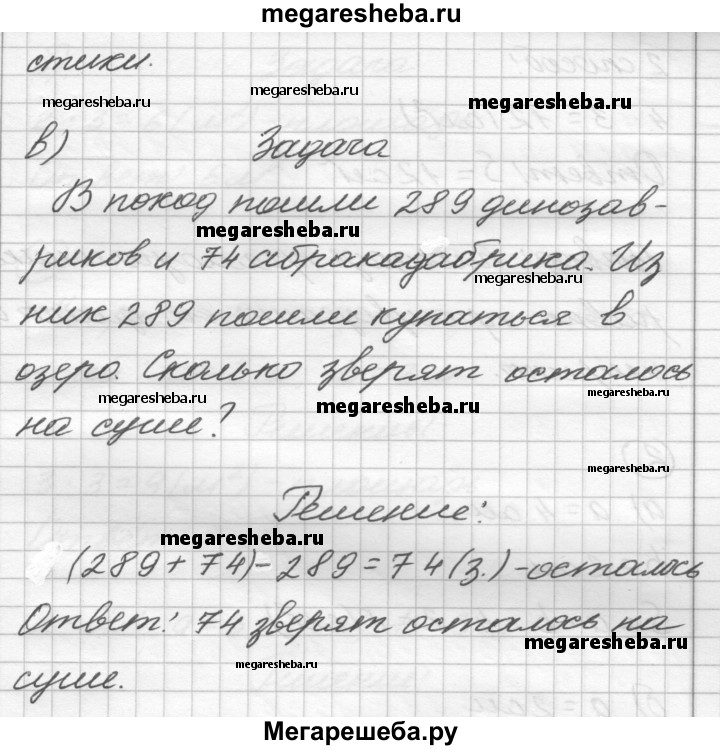 megaresheba.ru
стики.
megaresheba.ru megaresheba.ru megaresheba.ru
в) Задача
В поход пошли 289 динозав-
megaresheba.ru
риков и 74 абракадабрика. Из
megaresheba.ru
них 289 пошли купаться в
озеро. Сколько зверят осталось
megaresheba.ru megaresheba.ru megaresheba.ru
на суше?
megaresheba.ru
Решение:
megaresheba.ru
(289 + 74) - 289 = 74 (з.) - осталось
Ответ: 74 зверят осталось на
megaresheba.ru
megaresheba.ru
суше.
Мегарешеба.ру